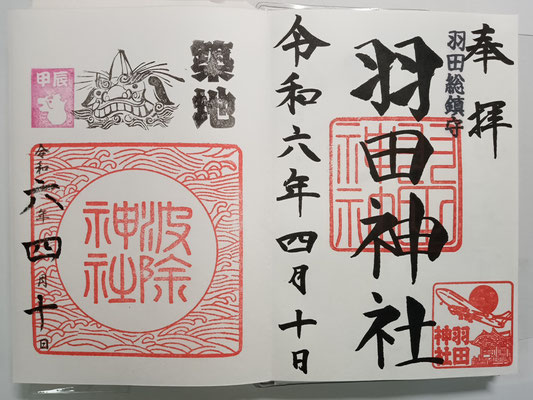 奉拝
羽田総鎮守
羽田神社
羽田神社
羽田神社
令和六年四月十日
築地
甲辰
波除神社
令和六年四月十日